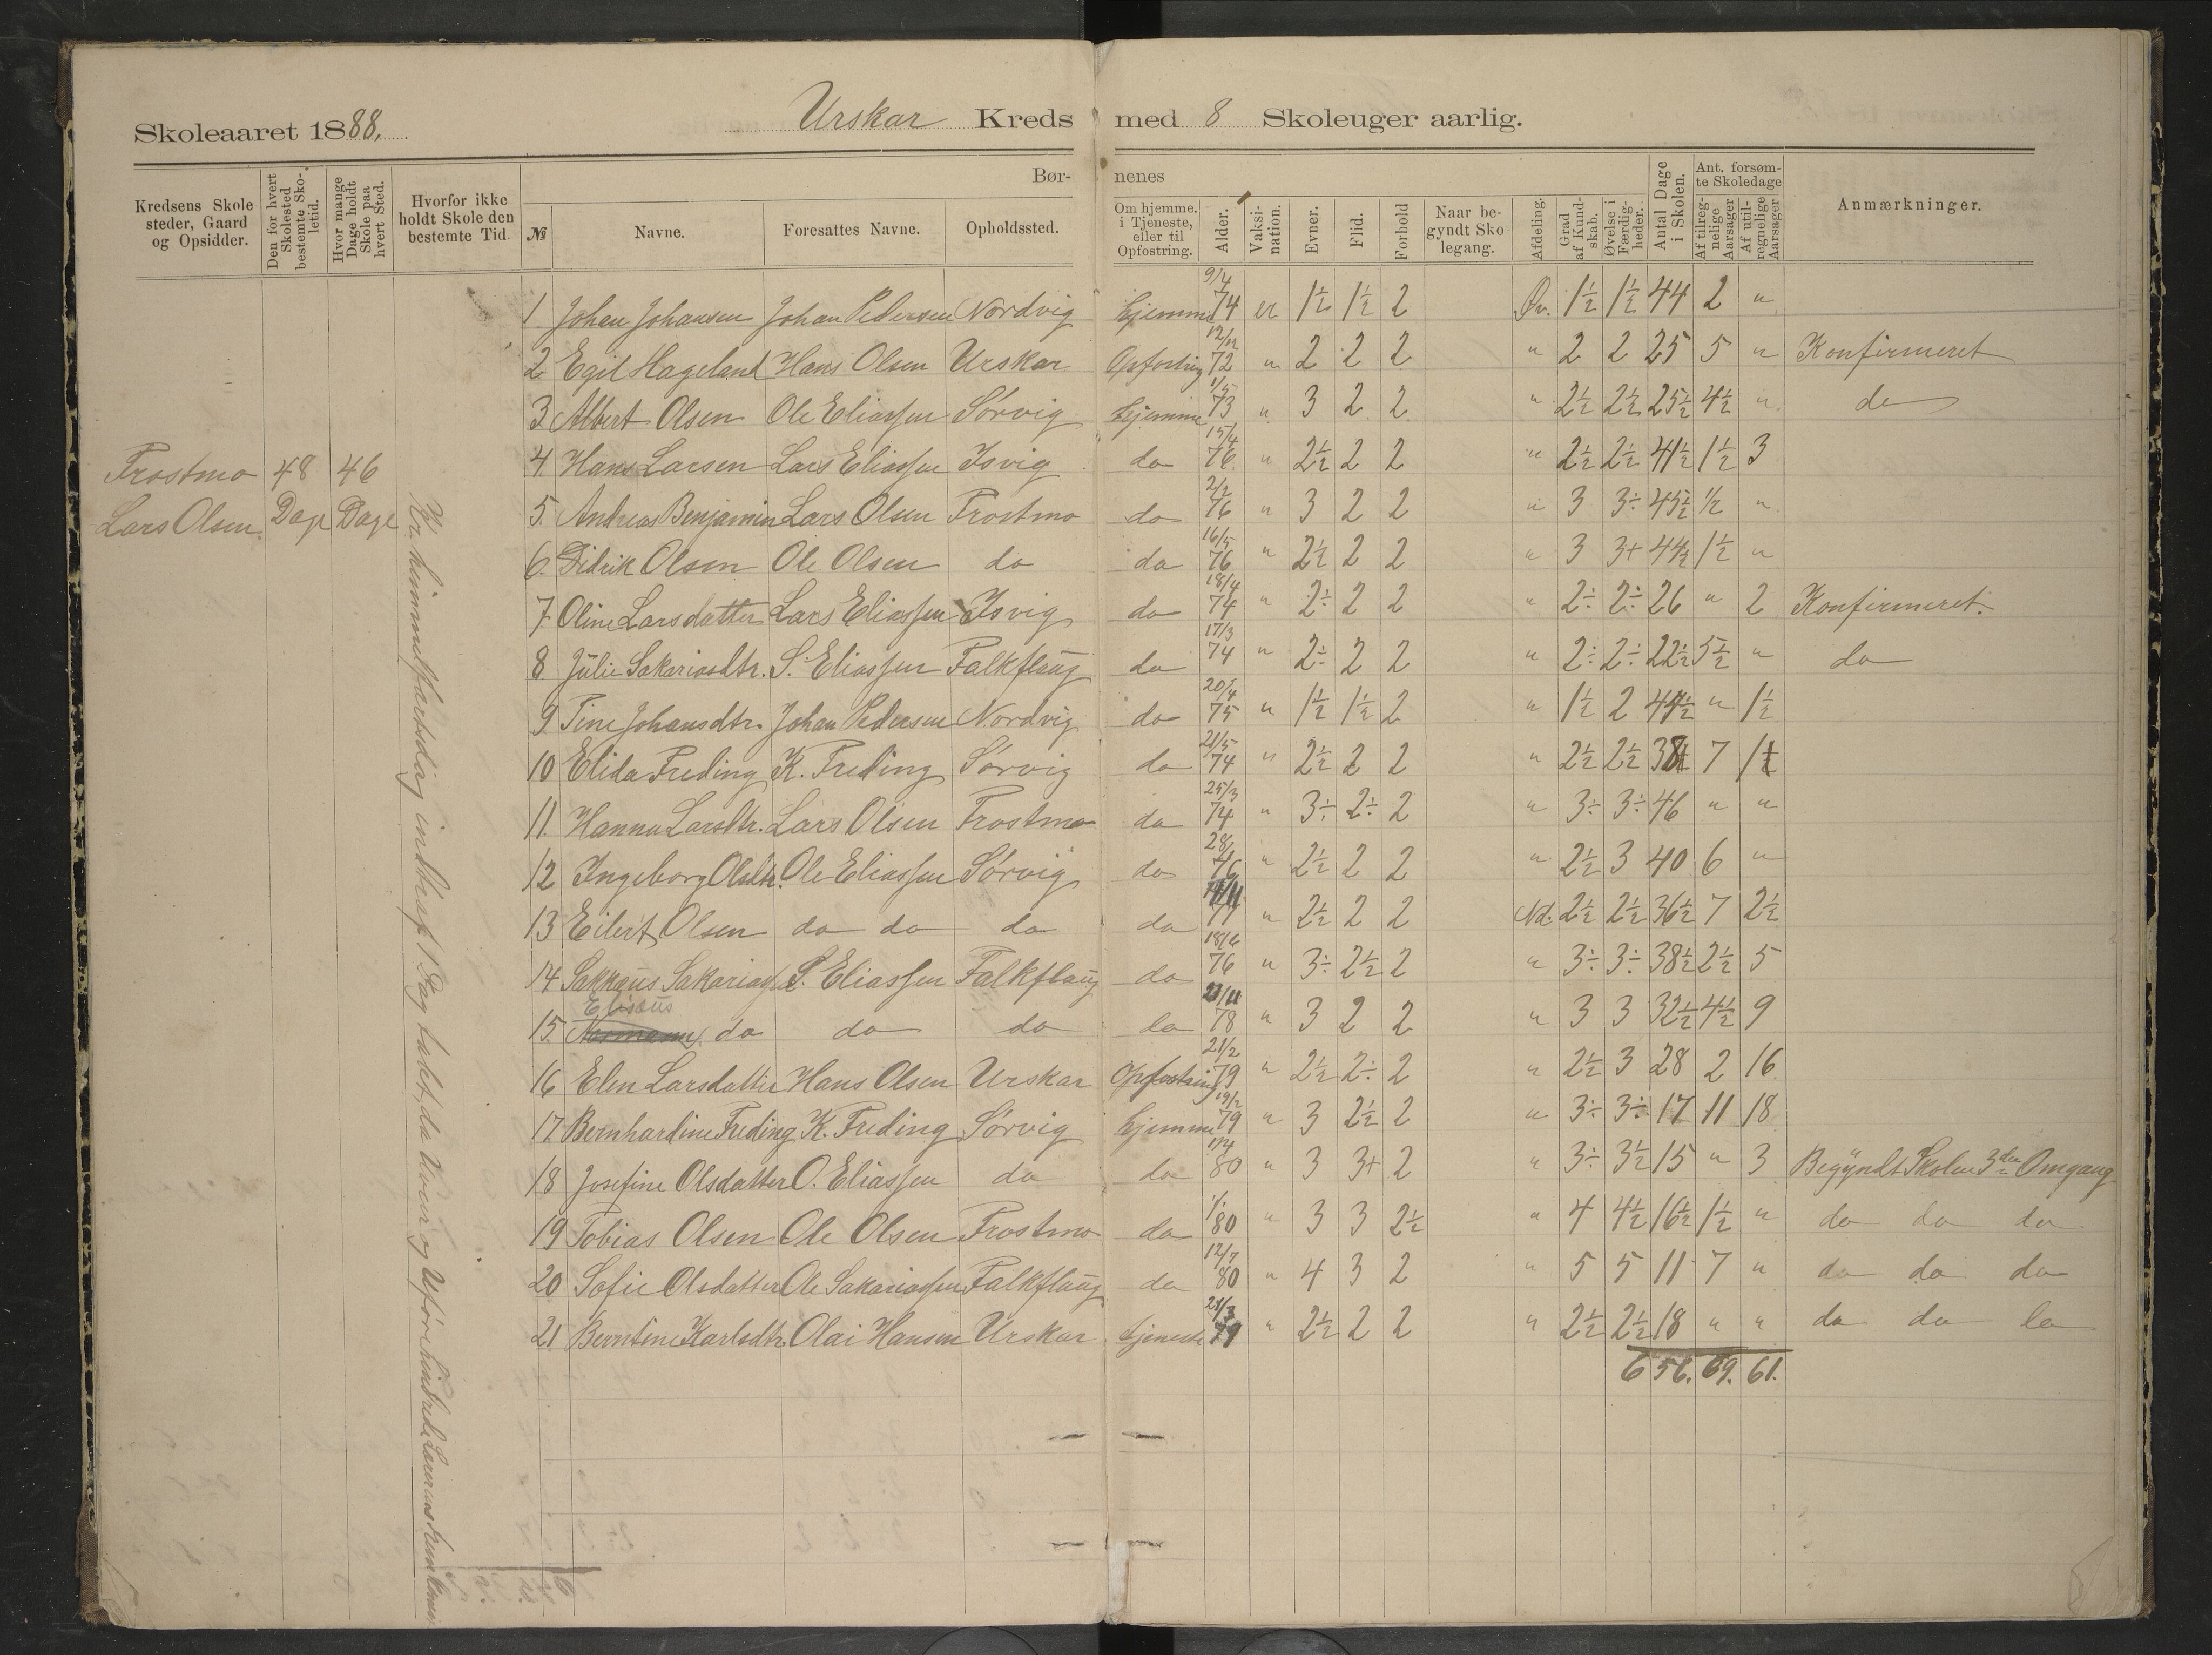 Skoleaaret 1888. Urskar Kreds med 8 Skoleuger aarlig.
Kredsens Skolesteder, Gaard og Opsidder.
Den for hvert Skolested bestemte Skoletid.
Hvor mange Dage holdt Skole paa hvert Sted.
Hvorfor ikke holdt Skole den bestemte Tid.
Børnenes
№
Navne.
Foresattes Navne.
Opholdssted.
Om hjemme, i Tjeneste, eller til Opfostring.
Alder.
Vaksination.
Evner.
Flid.
Forhold
Naar begyndt Skolegang.
Afdeling.
Grad af Kundskab.
Øvelse i Færdigheder.
Antal Dage i Skolen.
Ant. forsømte Skoledage
Af tilregnelige Aarsager
Af utilregnelige Aarsager
Anmærkninger.
Frostmo 48 Dage 46 Dage
Lars Olsen.
1 Johan Johansen Johan Pedersen Nordvig hjemme 9/4 74 er 1½ 1½ 2 Øv. 1½ 1½ 44 2 "
2 Egil Hageland Hans Olsen Urskar Opfostring 12/12 72 " 2 2 2 " 2 2 25 5 " Konfirmeret
3 Albert Olsen Ole Eliassen Sørvig hjemme 1/5 73 " 3 2 2 " 2½ 2½ 25½ 4½ " do
4 Hans Larsen Lars Eliassen Isvig do 15/4 76 " 2½ 2 2 " 2½ 2½ 41½ 1½ 3
5. Andreas Benjamin Lars Olsen Frostmo do 2/2 76 " 3 2 2 " 3 3÷ 45½ ½ "
6. Didrik Olsen Ole Olsen do do 16/5 76 " 2½ 2 2 " 3 3+ 44½ 1½ "
7 Oline Larsdatter Lars Eliassen Isvig do 18/4 74 " 2÷ 2 2 " 2÷ 2÷ 26 " 2 Konfirmeret.
8 Julie Sakariasdtr. S. Eliassen Falkflaug do 17/3 74 " 2÷ 2 2 " 2÷ 2÷ 22½ 5½ " do
9 Tine Johansdtr. Johan Pedersen Nordvig do 20/4 75 " 1½ 1½ 2 " 1½ 2 44½ " 1½
10 Elida Freding K. Freding Sørvig do 21/5 74 " 2½ 2 2 " 2½ 2½ 38 7 1
11 Hanna Larsdtr. Lars Olsen Frostmo do 25/3 74 " 3÷ 2÷ 2 " 3÷ 3÷ 46 " "
12 Ingeborg Olsdtr. Ole Eliassen Sørvig do 28/ 76 " 2½ 2 2 " 2½ 3 40 6 "
13 Eilert Olsen do do do do 77 " 2½ 2 2 Nd. 2½ 2½ 36½ 7 2½
14 Sakkæus Sakariass. S. Eliassen Falkflaug do 18/6 76 " 3÷ 2½ 2 " 3÷ 3÷ 38½ 2½ 5
Elisæus
15. do do do do 78 " 3 2 2 " 3 3 32½ 4½ 9
16 Elen Larsdatter Hans Olsen Urskar Opfostring 21/2 79 " 2½ 2÷ 2 " 2½ 3 28 2 16
17 Bernhardine Freding K. Freding Sørvig hjemme 19/2 79 " 3 2½ 2 " 3÷ 3÷ 17 11 18
18 Josefine Olsdatter O. Eliassen do do 80 " 3 3+ 2 " 3÷ 3½ 15 " 3 Begyndt Skolen 3die Omgang
19 Tobias Olsen Ole Olsen Frostmo do 80 " 3 3 2½ " 4 4½ 16½ 1½ " do do do
20 Sofie Olsdatter Ole Sakariassen Falkflaug do 12/7 80 " 4 3 2 " 5 5 11 7 " do do do
21 Berntine Karlsdtr. Olai Hansen Urskar tjeneste 79 " 2½ 2 2 " 2½ 2½ 18 " " do do do
656. 69. 61.